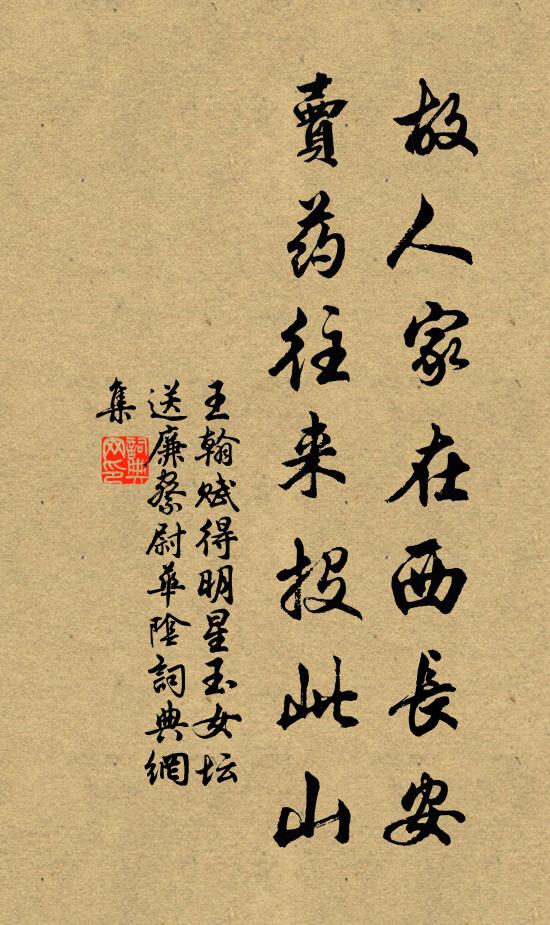 故人家在西長安
賣药往来投此山
王翰赋得明星玉女坛
送廉察尉華陰詞典網
集
詞典
网印